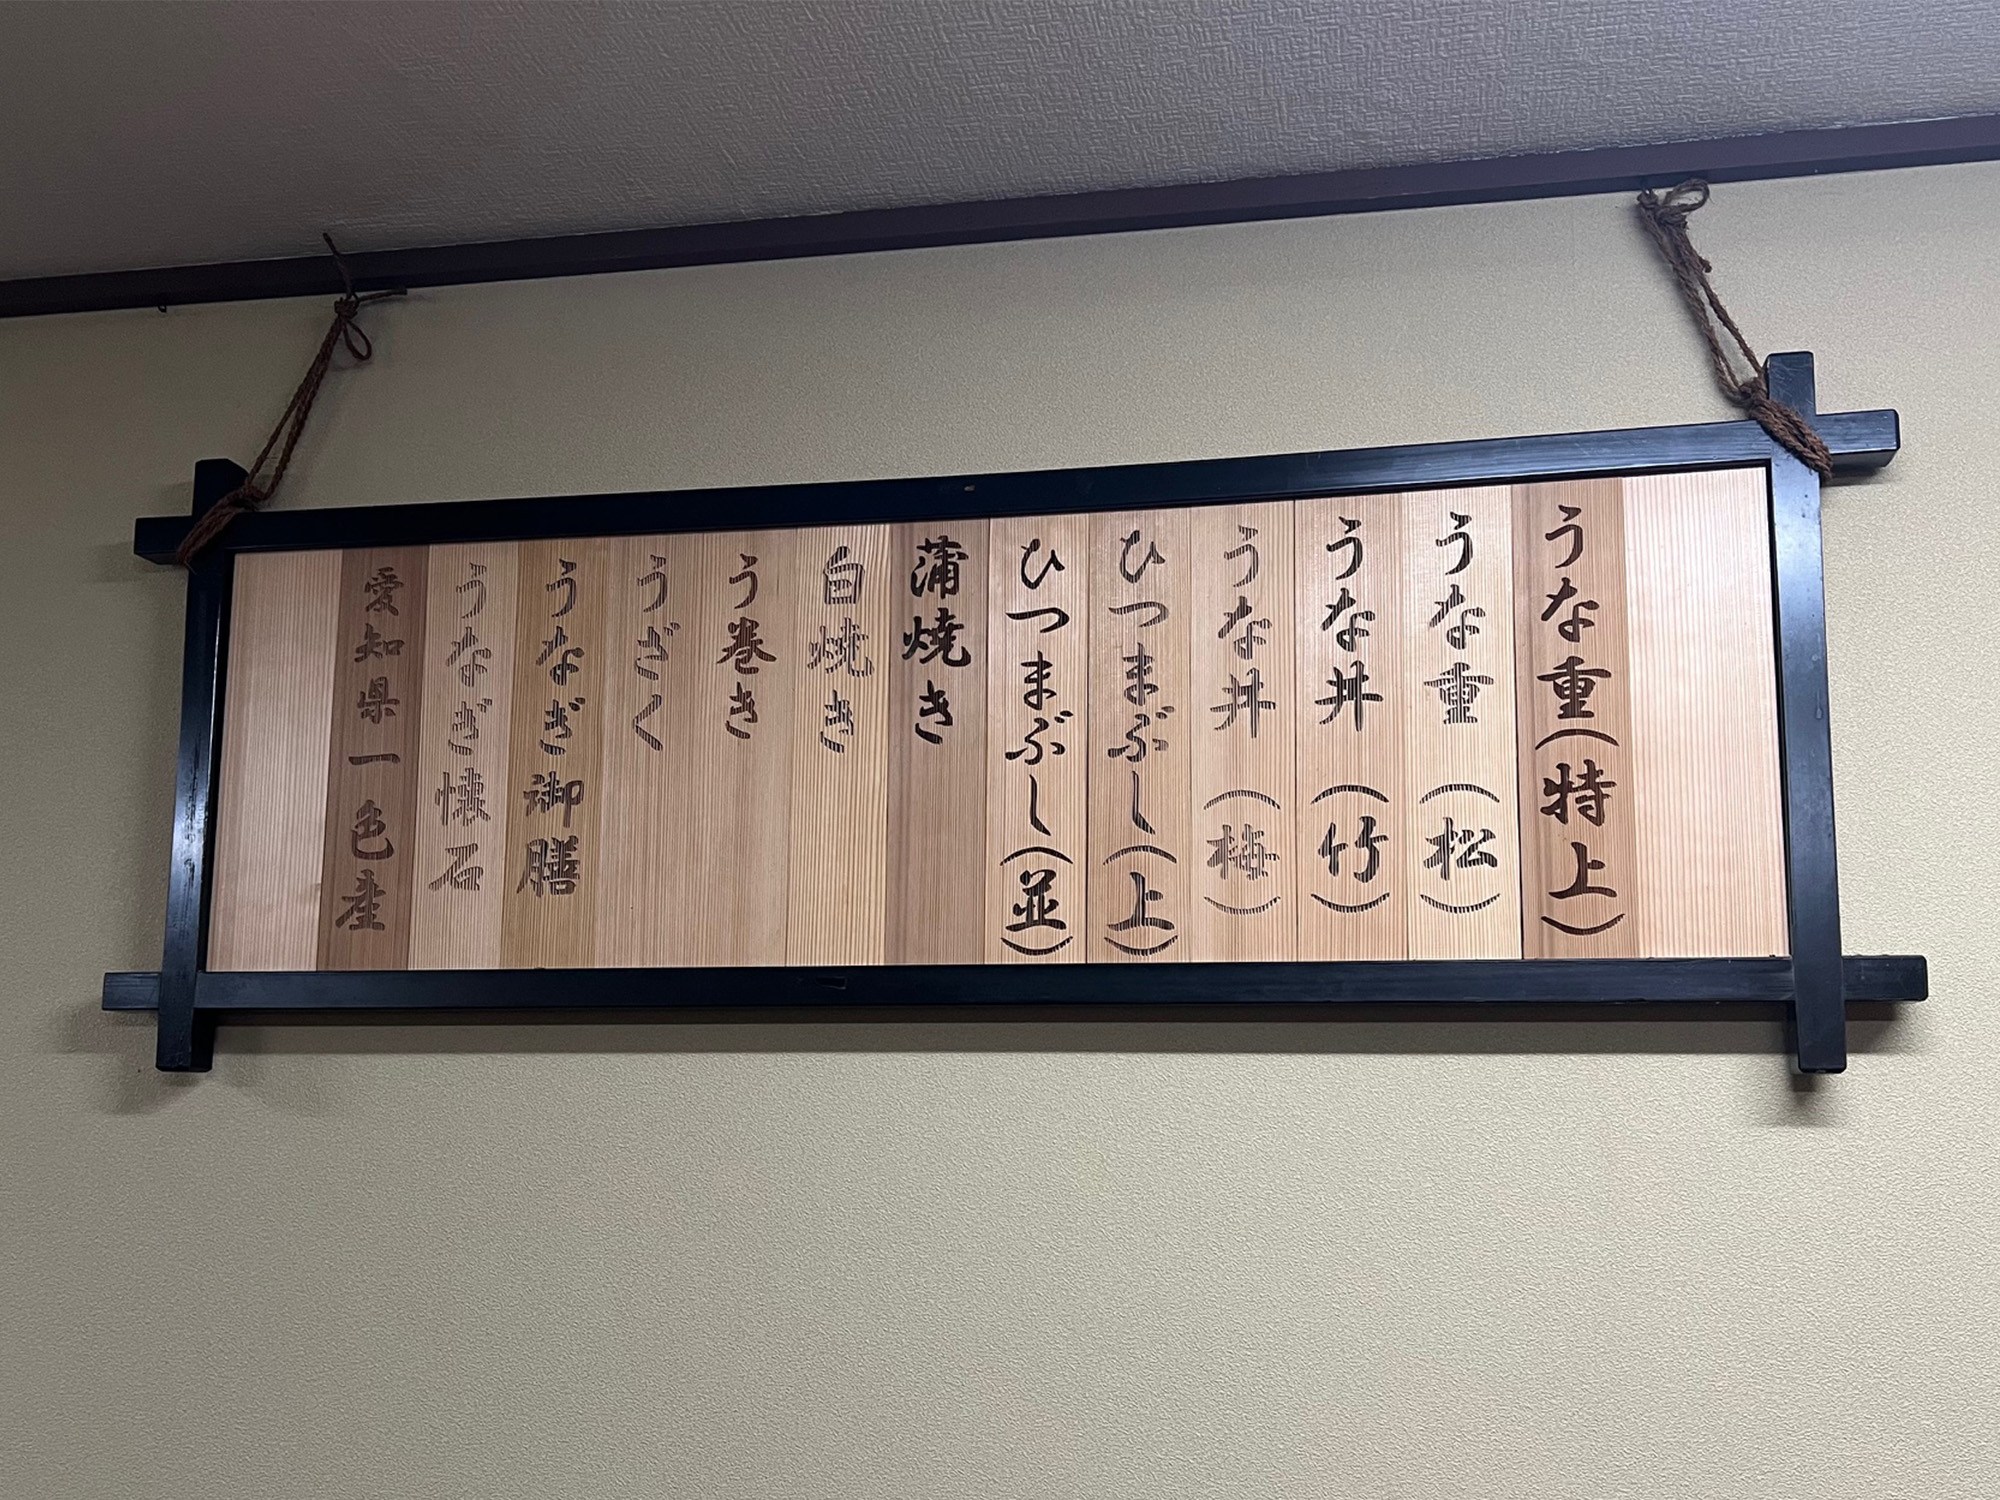 うな重(特上)
うな重(松)
うな丼(竹)
うな丼(梅)
ひつまぶし(上)
ひつまぶし(並)
蒲焼き
白焼き
う巻き
うざく
うなぎ御膳
うなぎ懐石
愛知県一色産